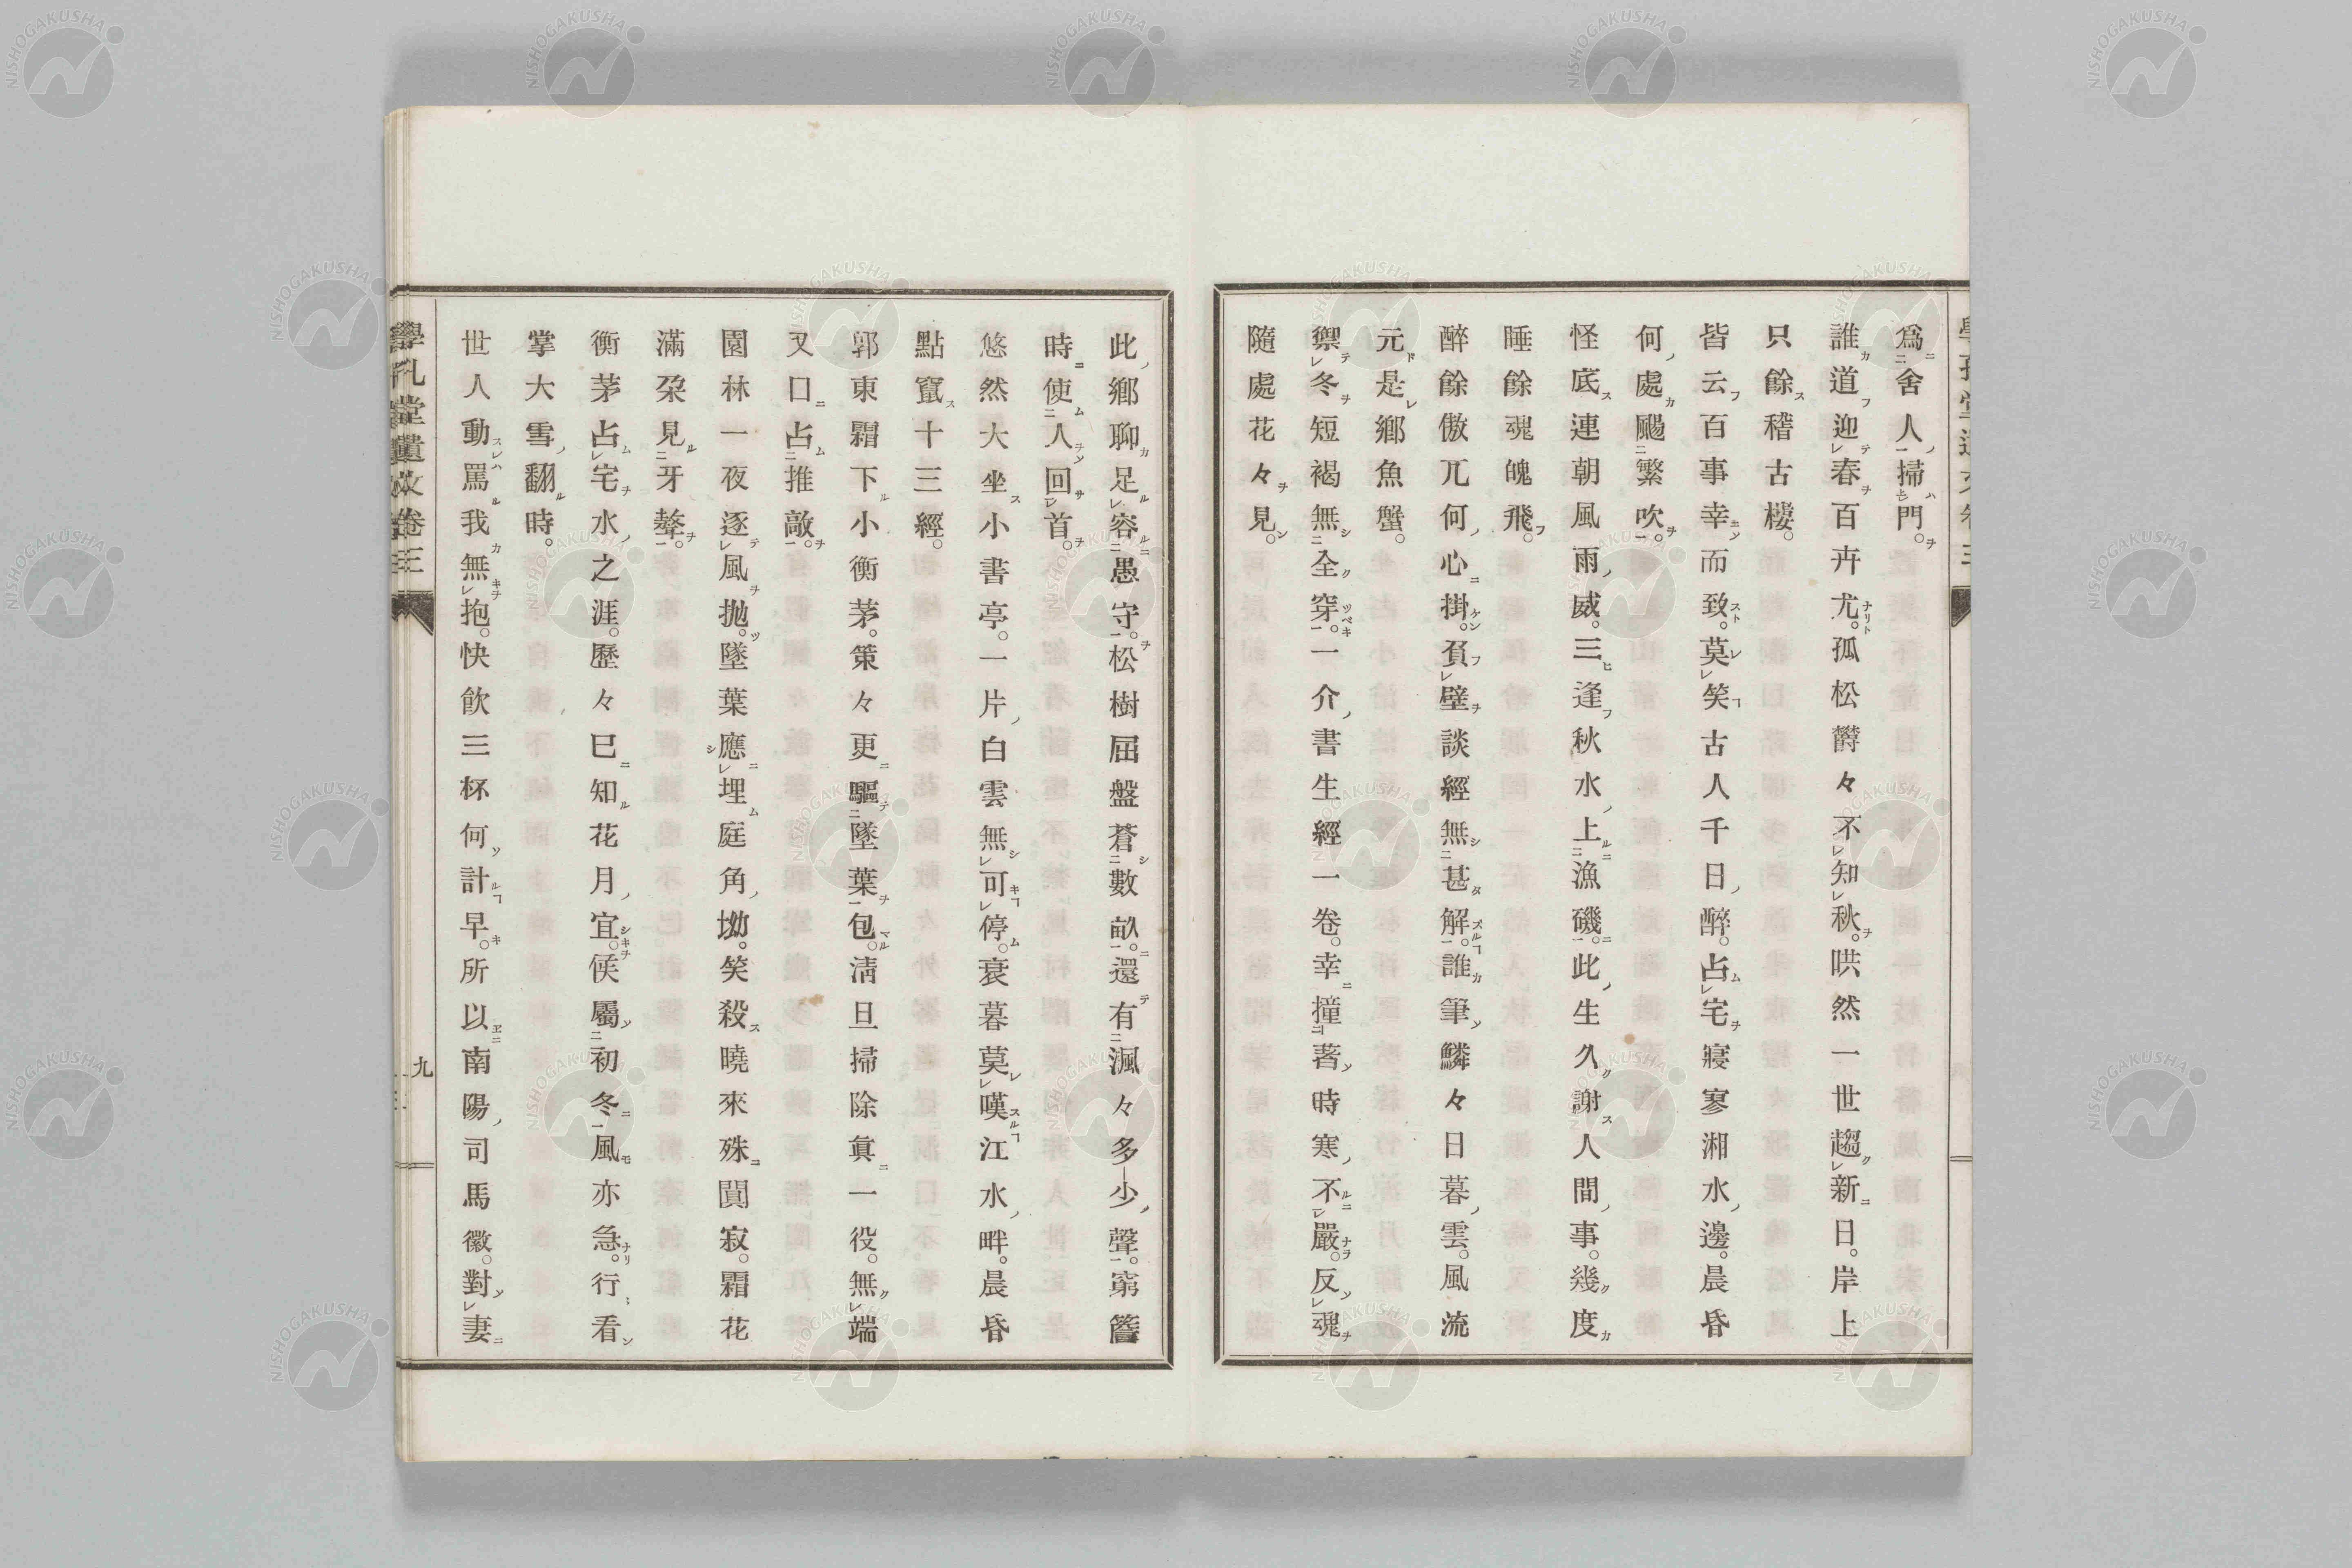 爲舍人掃門。
誰道迎春百卉尤。孤松欝々不知秋。哄然一世趨新日。岸上
只餘稽古樓。
皆云百事幸而致。莫笑古人千日醉。占宅寢寥湘水邊。晨昏
何處颺繁吹。
怪底連朝風雨威。三逢秋水上漁磯。此生久謝人間事。幾度
睡餘魂魄飛。
醉餘傲兀何心掛。負壁談經無甚解。誰筆鱗々日暮雲。風流
元是鄉魚蟹。
禦冬短褐無全穿。一介書生經一卷。幸撞著時寒不嚴。反魂
隨處花々見。
此鄉聊足容愚守。松樹屈盤蒼數畝。還有渢々多少聲。窮簷
時使人回首。
悠然大坐小書亭。一片白雲無可停。衰暮莫嘆江水畔。晨昏
點竄十三經。
郭東霜下小衡茅。策々更驅墜葉包。淸旦掃除眞一役。無端
又口占推敲。
園林一夜逐風抛。墜葉應埋庭角坳。笑殺曉來殊闃寂。霜花
滿朶見牙𣫍。
衡茅占宅水之涯。歷々已知花月宜。候屬初冬風亦急。行看
掌大雪翻時。
世人動罵我無抱。快飮三杯何計早。所以南陽司馬徽。對妻
學孔堂遺文卷三
九